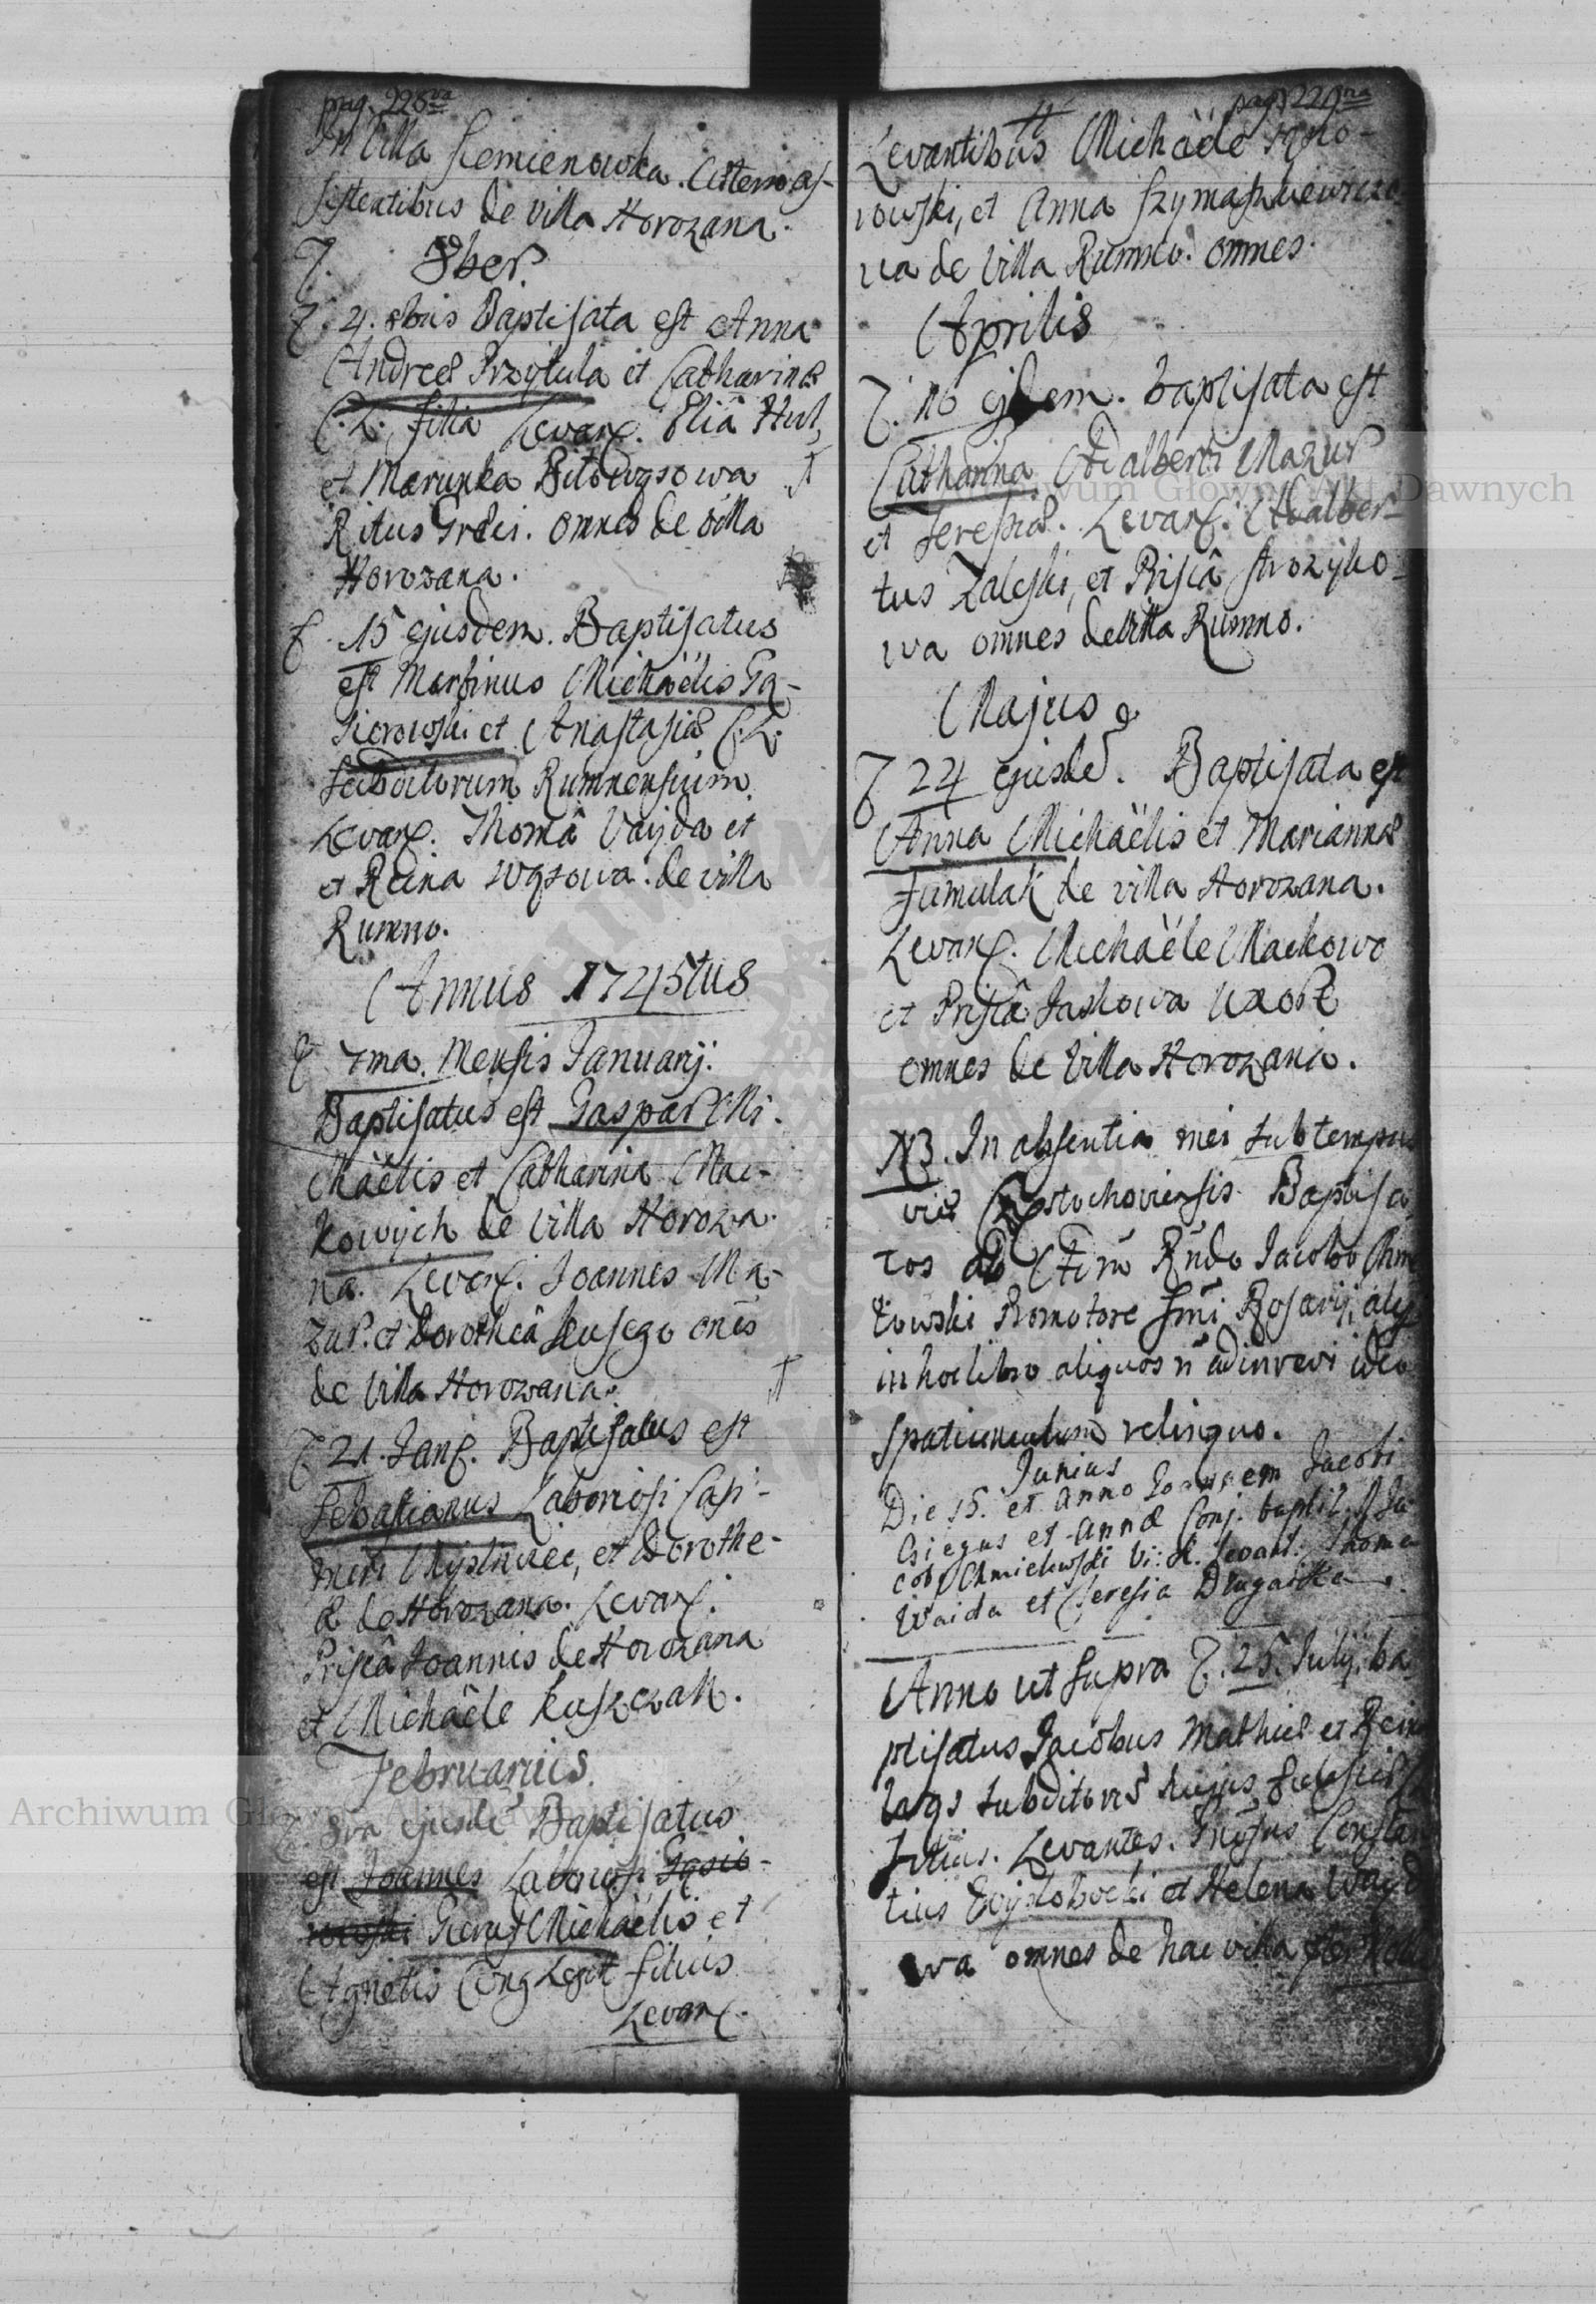 pag. 228va
In Villa Siemienowka. Caeteris as-
sistentibus de Villa Horozana.
8ber.
4. 8bris Baptisata est Anna
Andreæ Przytula et Catharinæ
C. L. filia Levan. Elia Hul,
et Marunka
Ritus Græci. omnes de villa
Horozana.
15 ejusdem. Baptisatus
est Martinus Michaëlis Gą-
siorowski et Anastasiæ C. L.
subditorum Rumnensium
Levan. Thomâ Vayda et
et Reina Wąsowa. de villa
Rumno.
Annus 1745tus
7ma. Mensis Januarij.
Baptisatus est Gaspar Mi-
chaëlis et Catharina Mac-
kowych de Villa Horoza-
na. Levan. Joannes Ma-
zur. et Dorotheâ omēs
de Villa Horozana.
21. Jan. Baptisatus est
Sebastianus Laboriosi Casi-
miri et Dorothe-
æ de Horozana. Levan.
Priscâ Joannis de Horozana
et Michaële Kuszczak.
Februarius.
8va ejusdē Baptisatus
est Joannes Laboriosi Gąsio-
rowski Michaëlis et
Agnetis Conj Legit filius
Levan.
pag 229na
Levantibus Michaële
rowski, et Anna
va de Villa Rumno. omnes.
Aprilis
16 ejdem. baptisata est
Catharina Adalberti Mazur
et Teresiæ. Levan. Adalber-
tus Zaleski, et Priscâ Strozyko-
wa omnes de Villa Rumno.
Majus
24 ejusdē. Baptisata est
Anna Michaëlis et Mariannæ
Jumulak de villa Horozana.
Levan. Michaële Mackowo
et Priscâ Jaskowa Uxore
omnes de Villa Horozania.
NB. In absentia mei sub tempus
viæ Czestochoviensis Baptisa-
tos ab Adm Rndo Jacobo Chmie
lowski Promotore Smi Rosarij,
in hoc libro aliquos n adinveni ideo
spatiunculum relinquo.
Junius
Die 15. et Anno Joannem Jacobi
Gsiegus et Annæ Conj. baptiz. Ja-
cob, Chmielewski Levant. Thoma
Waida et Teresia Dlugaszka.
Anno ut supra 25. Julij. ba
ptisatus Jacobus Mathiæ et Rein
Wąs subditorū hujus Ecclesiæ
filius. Levantes. Gnosus Constan
tius et Helena Wayd
wa omnes de hac villa